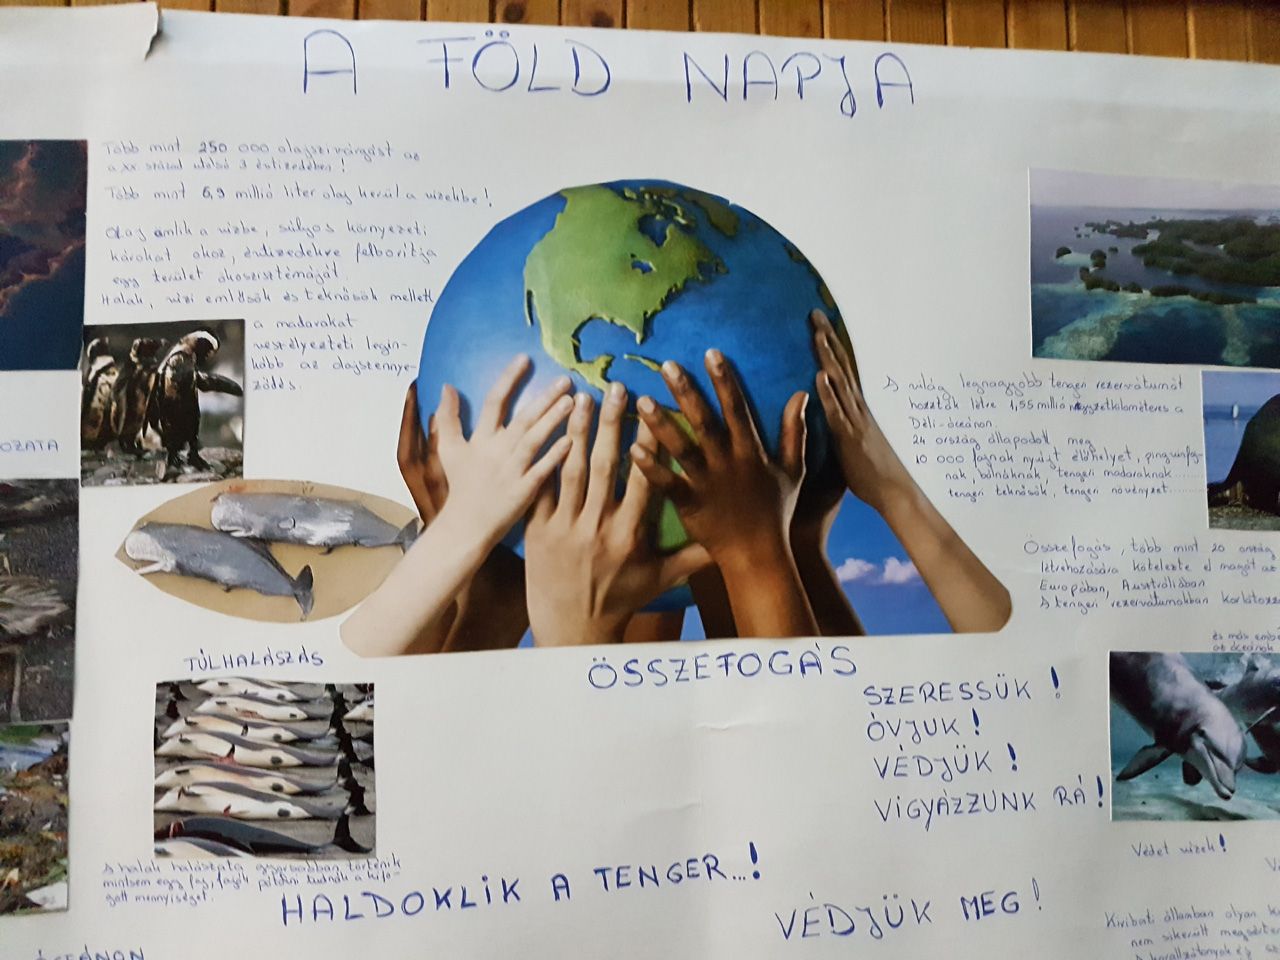 A FÖLD NAPJA
Több mint 250 000 olajszivárgást az
a xx. század utolsó 3 évtizedében!
Több mint 6,9 millió liter olaj kerül a vizekbe!
Olaj ömlik a vízbe, súlyos környezeti
károkat okoz, évtizedekre felborítja
egy terület ökoszisztémáját.
Halak, vízi emlősök és teknősök mellett
a madarakat
veszélyezteti legin-
kább az olajszennye-
ződés.
OZATA
TÚLHALÁSZÁS
A halak halászata gyorsabban történik
mintsem egy faj, fajok pótolni tudnák a kifo-
gott mennyiséget.
ÖSSZEFOGÁS
SZERESSÜK!
ÓVJUK!
VÉDJÜK!
VIGYÁZZUNK RÁ!
HALDOKLIK A TENGER...!
VÉDJÜK MEG!
A világ legnagyobb tengeri rezervátumát
hozták létre 1,55 millió négyzetkilométeres a
Déli-óceánon.
24 ország állapodott meg
10 000 fajnak nyújt élőhelyet, pingvinfaj-
nak, bálnáknak, tengeri madaraknak
tengeri teknősök, tengeri növényzet........
Összefogás, több mint 20 ország
létrehozására kötelezte el magát az
Európában, Ausztráliában
A tengeri rezervátumokban korlátozz
és más embe
az óceánok
Védet vizek!
Kiribati államban olyan k
nem sikerült megsérte
A korallzátonyok és sz
ÓCEÁNON